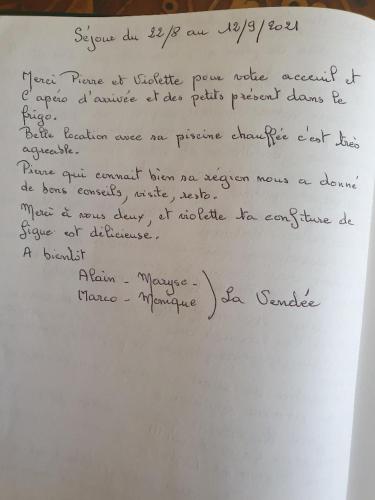 Séjour du 22/8 au 12/9/2021
Merci Pierre et Violette pour votre acceuil et
l'apéro d'arrivée et des petits présent dans le
frigo.
Belle location avec sa piscine chauffée c'est très
agreable.
Pierre qui connait bien sa région nous a donné
de bons conseils, visite, resto.
Merci à vous deux, et violette ta confiture de
figue est délicieuse.
A bientôt
Alain - Maryse -
Marco - Monique ) La Vendée